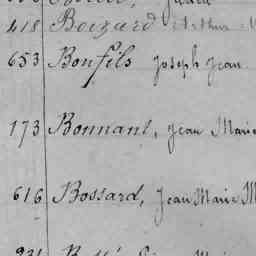 418 Boizard Arthur
653 Bonfils Joseph Jean
173 Bonnant, Jean Marie
616 Bossard, Jean Marie M